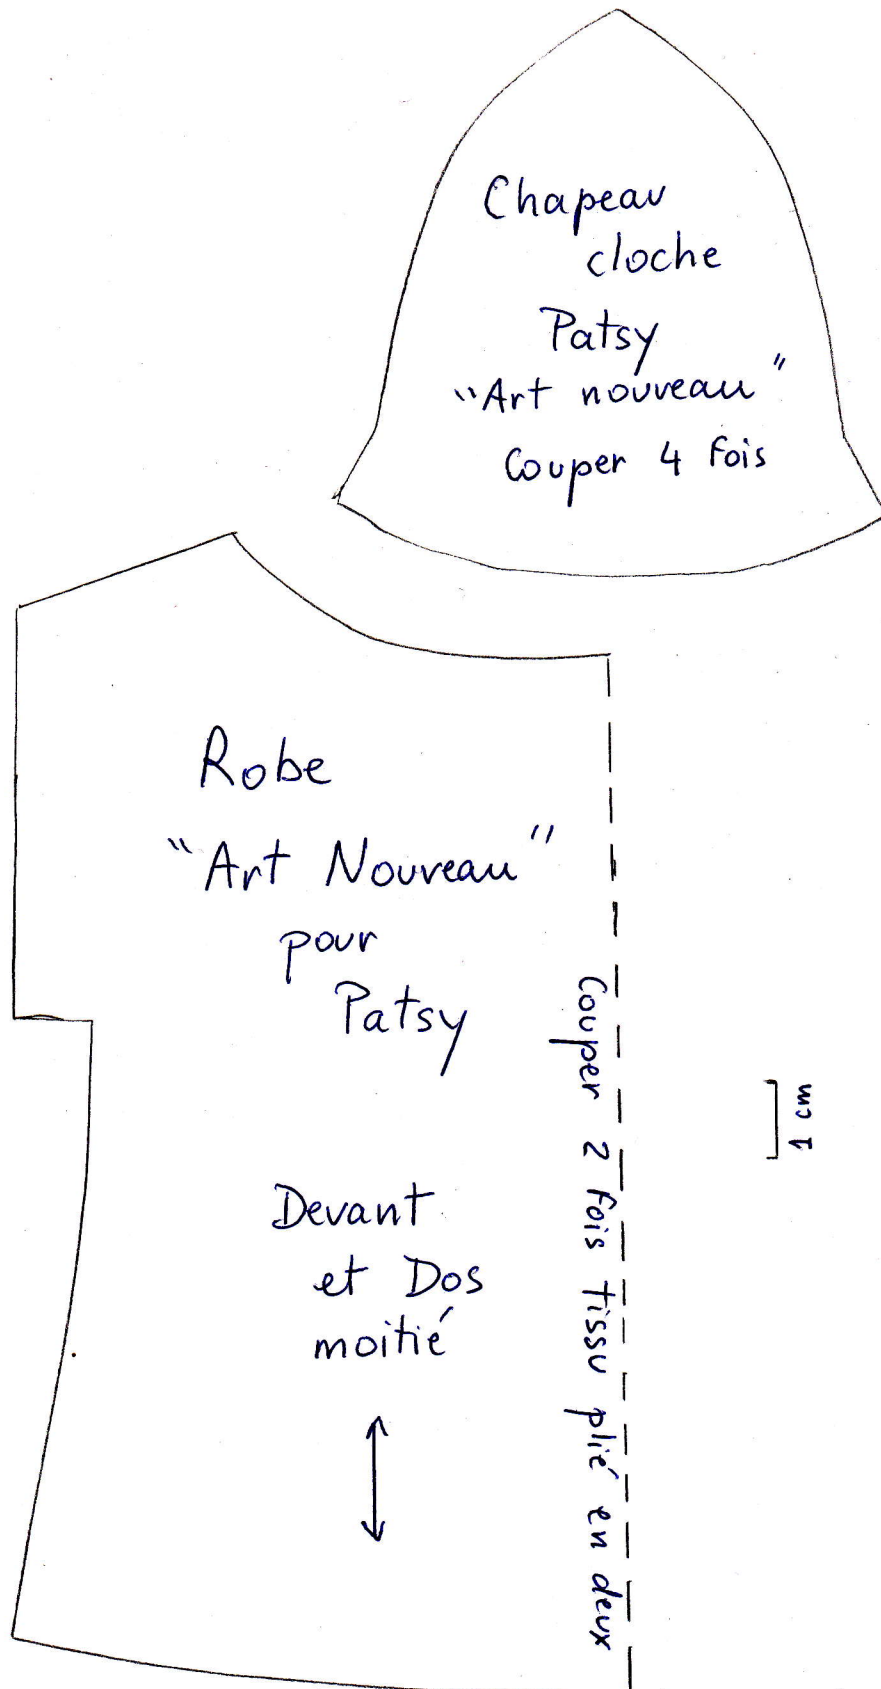 Chapeau
cloche
Patsy
"Art nouveau"
Couper 4 fois
Robe
"Art Nouveau"
pour
Patsy
Devant
et Dos
moitié
Couper 2 fois tissu plié en deux
1 cm